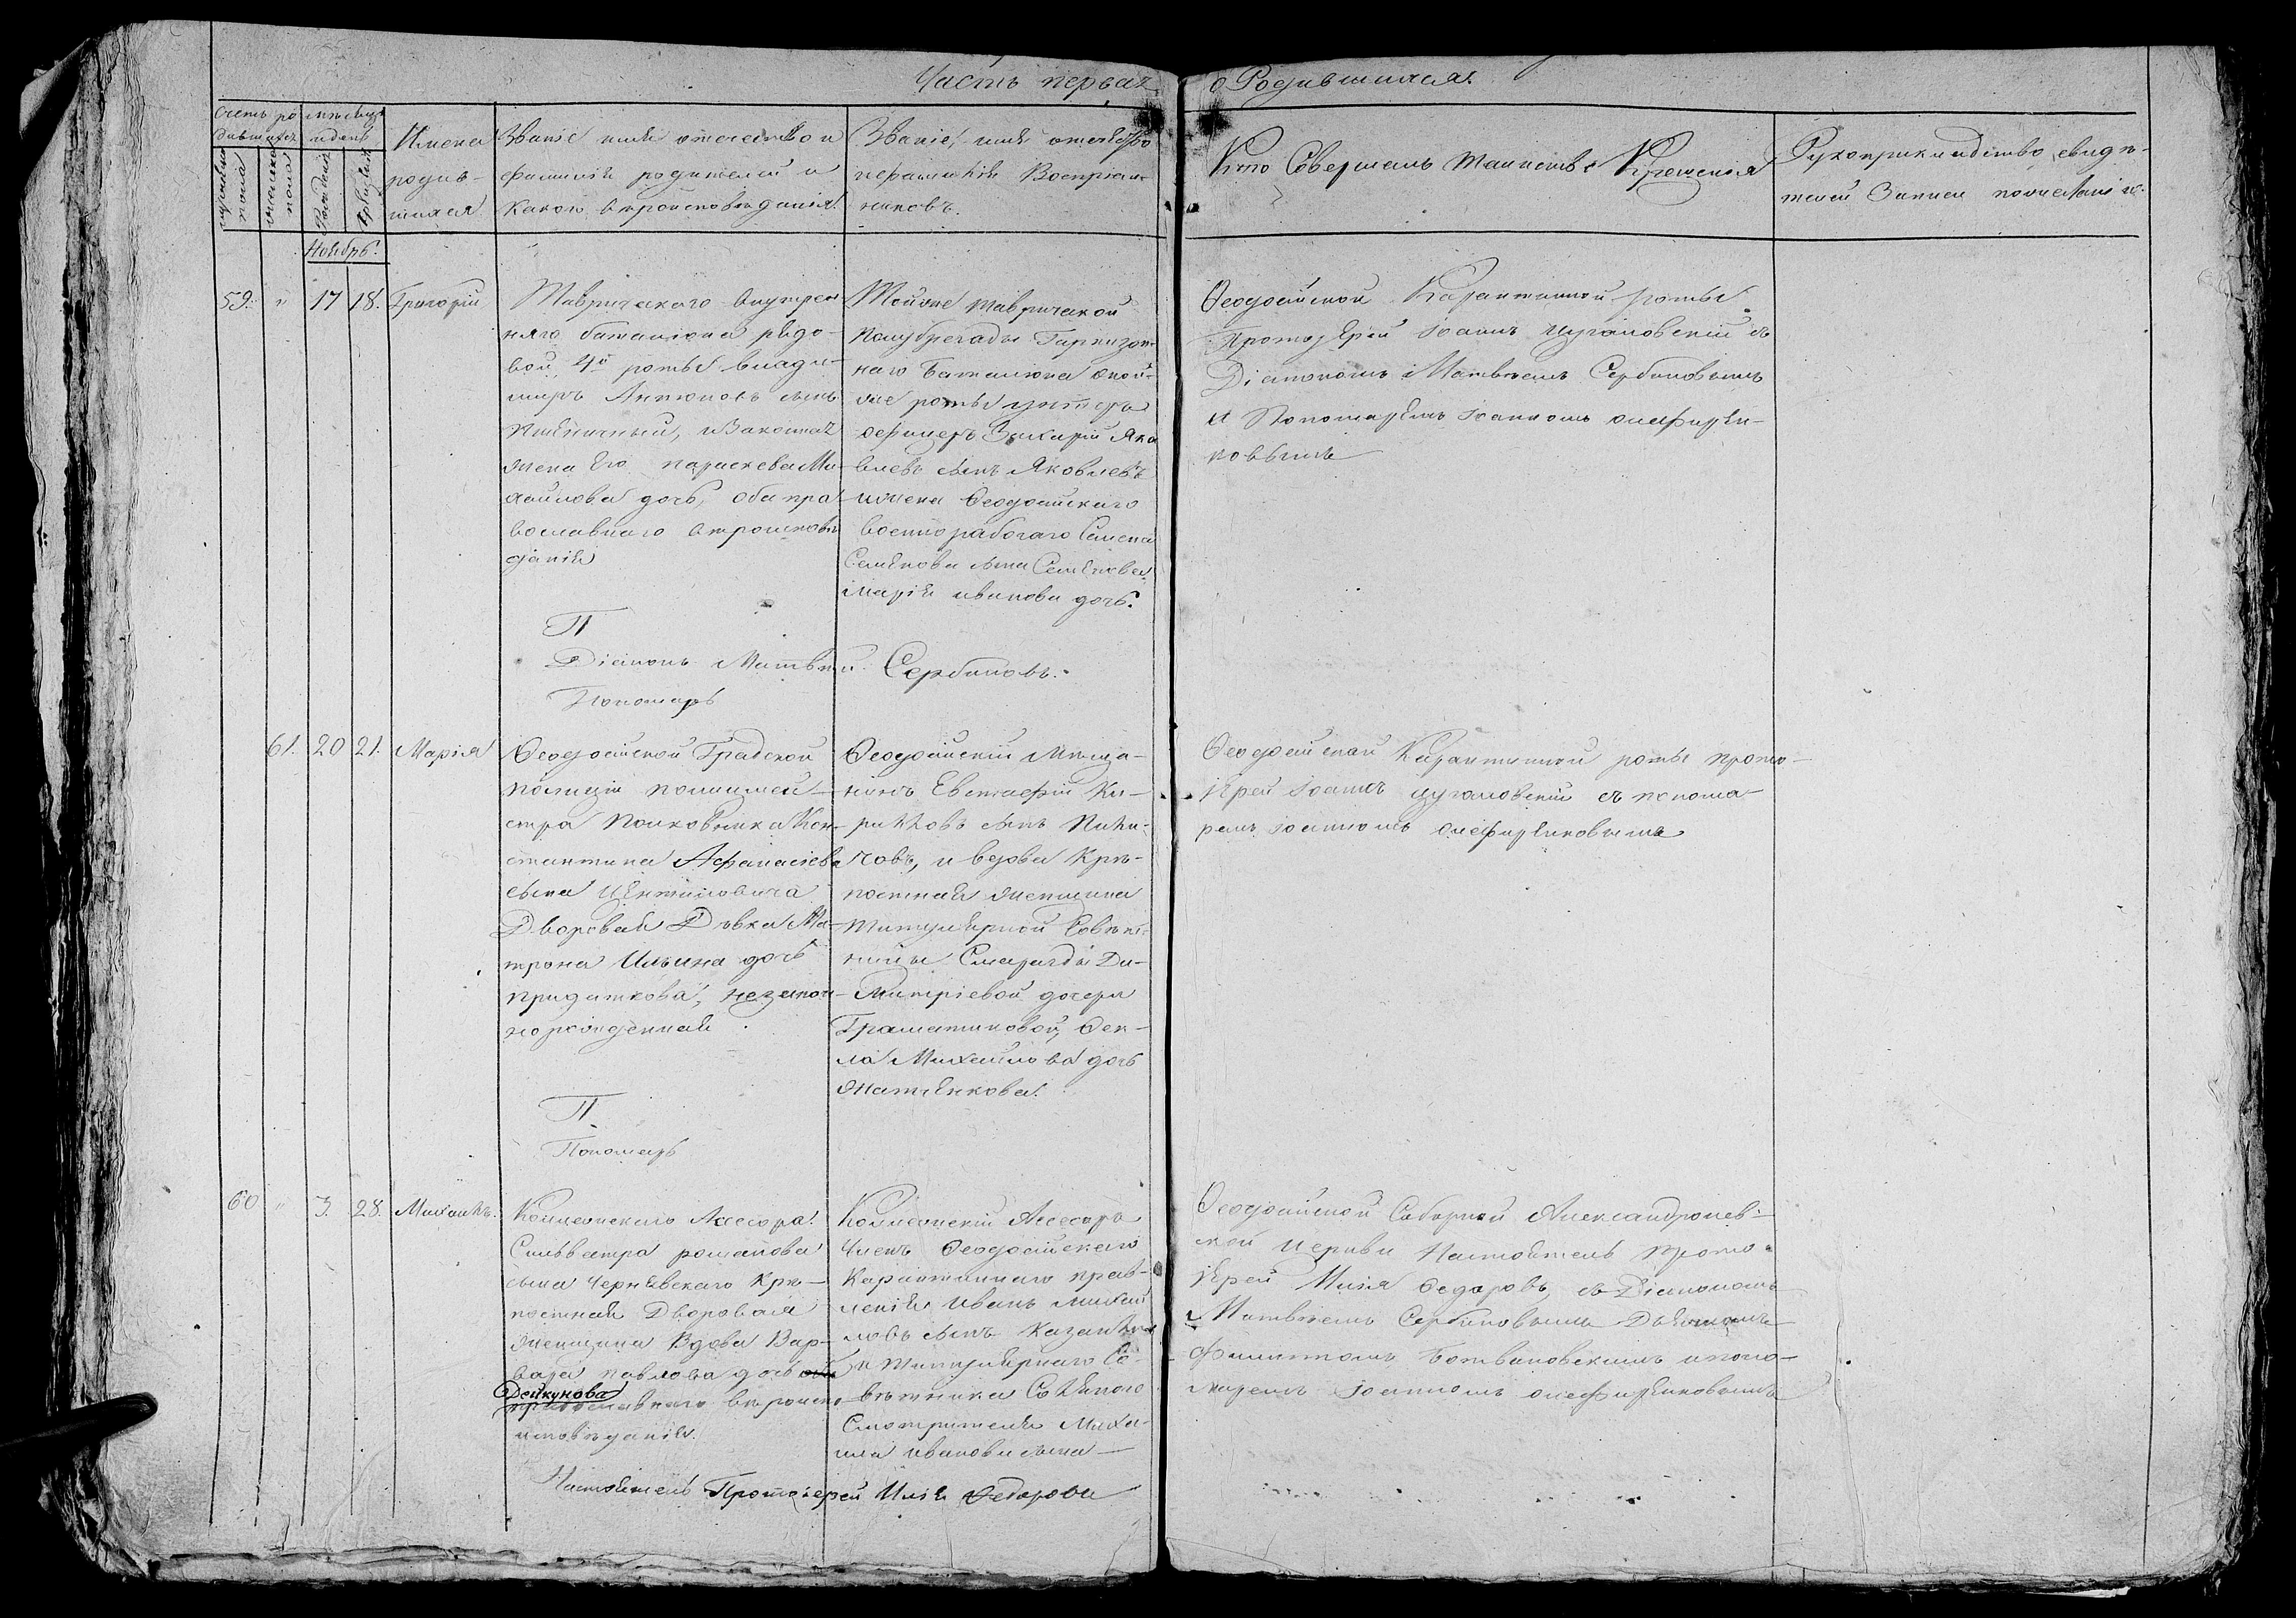 Часть первая
о Родившихся.
Счетъ ро
дившихся
мѣсяцъ
и день
мужеска
пола
женска
пола
Рожденія
Крещенія
Имена
родив-
шихся
Званіе имя отечество и
фамилія родителей и
какого вѣроисповѣданія.
Званіе, имя отечество
и фамилія Воспріем-
никовъ.
Кто Совершалъ таинство Крещенія
Рукоприкладство свидѣ-
телей Записи
Ноябрь.
59. " 17 18. Григорій
Таврическаго внутрен
няго баталіона рядо-
вой 4й роты влади-
миръ Антоновъ сынъ
Пшеничный, и Законная
жена Его параскева Ми-
хайлова дочь, оба пра-
вославнаго вѣроисповѣ
данія
Тойже таврической
полубрегады Гарнизон-
наго Баталіона
роты унтеръ
офицеръ Захарій Яко
влевъ сынъ Яковлевъ
и жена Ѳеодосійскаго
военнорабочаго Семена
Семенова сына Семенова
Марія иванова дочь.
Ѳеодосійской Карантинной роты
Протоіерей Іоаннъ Цугаловскій съ
Діакономъ Матвѣемъ Сербиновымъ
и Пономаремъ Іоанномъ Олефирен-
ковымъ
П
Діаконъ Матвѣй Сербиновъ.
Пономарь
61. 20 21. Марія
Ѳеодосійской Градской
полиціи полицмей-
стра Полковника Кон-
стантина Афанасіева
сына Центиловича
Дворовая Дѣвка Ма-
трона Ильина дочь
придаткова, незакон-
норожденная.
Ѳеодосійскій Мѣща-
нинъ Евстафій Ки-
рилловъ сынъ
и вдова Крѣ-
постная женщина
титулярной Совѣт-
ницы Смарагды Ди-
митріевой дочери
Граматиковой, Ѳек-
ла Михайлова дочь
Ѳеодосійской Карантинной роты прото-
іерей Іоаннъ Цугаловскій съ понома-
ремъ Іоанномъ Олефиренковымъ
П.
Пономарь
60 " 3. 28. Михаилъ.
Коллежскаго Ассесора
Сильвестра романова
сына Чернявскаго Крѣ-
постная Дворовая
женщина Вдова Вар-
вара павлова дочь
Дейкунова
православнаго вѣроис-
повѣданія.
Коллежскій Ассесоръ
Членъ Ѳеодосійскаго
Карантиннаго прав-
ленія Иванъ михай
ловъ сынъ
и титулярнаго Со-
вѣтника Солянаго
Смотрителя Миха-
ила иванова сына
Ѳеодосійской Соборной Александроневс-
кой Церкви Настоятель прото-
іерей Илія Ѳедоровъ, съ Діакономъ
Матвѣемъ Сербиновымъ Дьячкомъ
Филиппомъ Ботвановскимъ и поно-
маремъ Іоанномъ Олефиренковымъ
Настоятель Протоіерей Илія Ѳедоровъ